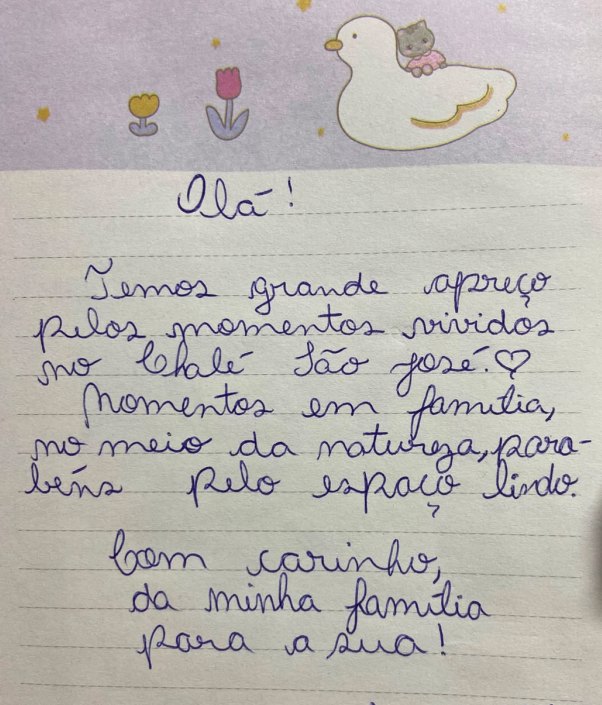 Olá!
Temos grande apreço
pelos momentos vividos
no Chalé São José.♡
Momentos em família,
no meio da natureza, para-
béns pelo espaço lindo.
Com carinho,
da minha família
para a sua!